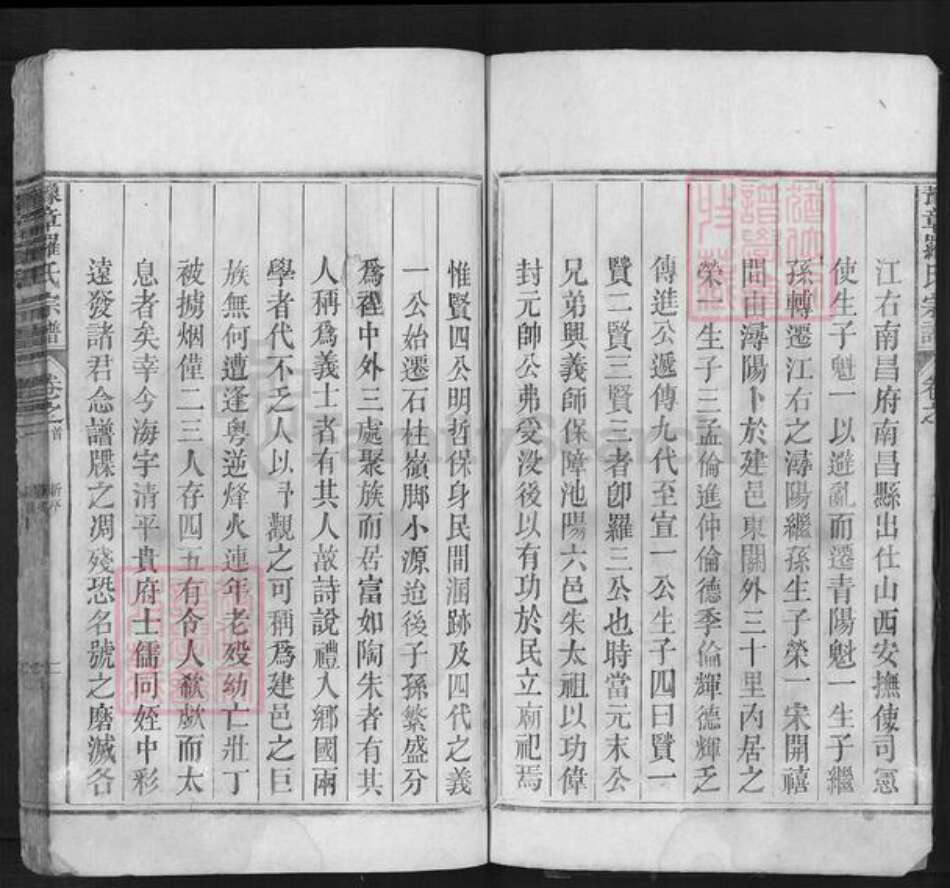 豫章羅氏宗譜 卷之
江右南昌府南昌縣出仕山西安撫使司憲
使生子魁一以避亂而遷青陽魁一生子繼
孫轉遷江右之潯陽繼孫生子榮一宋開禧
間由潯陽卜於建邑東關外三十里內居之
榮一生子三孟倫進仲倫德季倫輝德輝乏
傳進公遞傳九代至宣一公生子四曰賢一
賢二賢三賢三者卽羅三公也時當元末公
兄弟興義師保障池陽六邑朱太祖以功偉
封元帥公弗受没後以有功於民立廟祀焉
惟賢四公明哲保身民間溷跡及四代之義
一公始遷石柱嶺脚小源迨後子孫繁盛分
爲裡中外三處聚族而居富如陶朱者有其
人稱爲義士者有其人故詩說禮入鄉國兩
學者代不乏人以予觀之可稱爲建邑之巨
族無何遭逢粤逆烽火連年老歿幼亡壯丁
被擄烟僅二三人存四五有令人欷歔而太
息者矣幸今海宇清平貴府士儒同姪中彩
遠發諸君念譜牒之凋殘恐名號之磨滅各
豫章羅氏宗譜 卷之首 新序 二